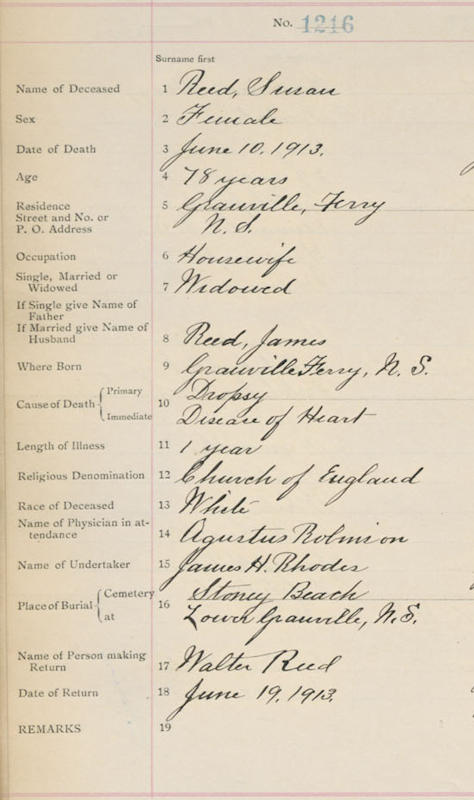 No. 1216
Surname first
Name of Deceased 1 Reed, Susan
Sex 2 Female
Date of Death 3 June 10. 1913.
Age 4 78 years
Residence
Street and No. or 5 Granville, Ferry
P. O. Address N. S.
Occupation 6 Housewife
Single, Married or
Widowed 7 Widowed
If Single give Name of
Father
If Married give Name of
Husband 8 Reed, James
Where Born 9 Granville Ferry, N. S.
Cause of Death Primary 10 Dropsy
Immediate Disease of Heart
Length of Illness 11 1 year
Religious Denomination 12 Church of England
Race of Deceased 13 White
Name of Physician in at-
tendance 14 Agustus Robinson
Name of Undertaker 15 James H. Rhodes
Place of Burial Cemetery 16 Stoney Beach
at Lower Granville, N. S.
Name of Person making
Return 17 Walter Reed
Date of Return 18 June 19. 1913.
REMARKS 19